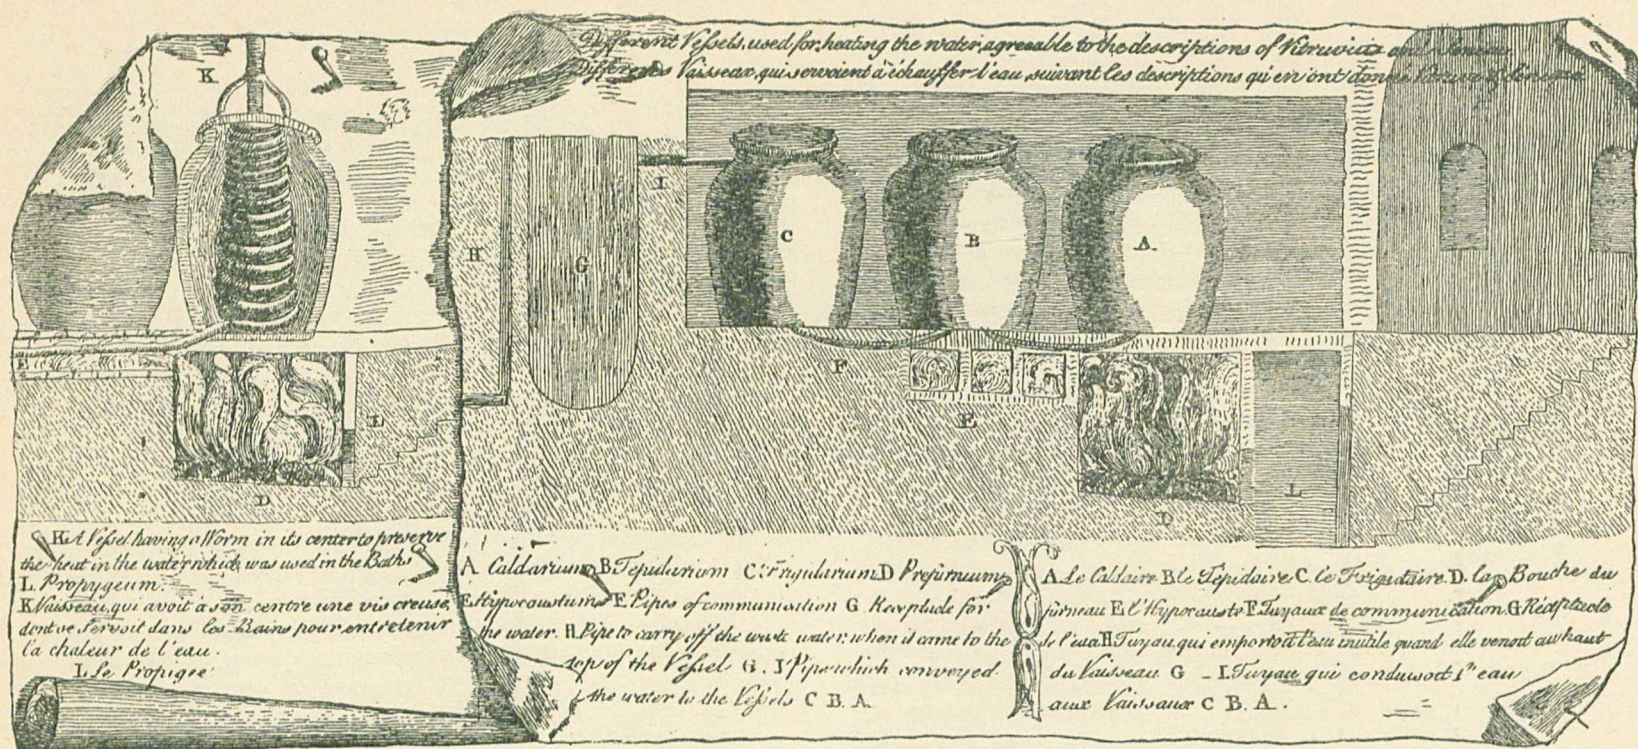 Different Vessels, used for heating the water, agreeable to the descriptions of Vitruvius and
Différens Vaisseax, qui servoient à échauffer l'eau, suivant les descriptions qu'en ont donné
K
H
G
I
C
B
A.
E
F
E
L
D
L
D
K. A Vessel having a Worm in its center to preserve
the heat in the water which was used in the Baths
L. Propygeum.
K Vaisseau, qui avoit à son centre une vis creuse,
dont on se servoit dans les Bains pour entretenir
la chaleur de l'eau.
L. Le Propigée
A Caldarium B. Tepidarium C. Frigidarium D Prefurneum
E. Hypocaustum F. Pipes of communication G. Receptacle for
the water. H. Pipe to carry off the waste water, when it came to the
top of the Vessel G. I Pipe which conveyed
the water to the Vessels C B. A.
A. Le Caldaire B. le Tépidaire C. le Frigidaire. D. la Bouche du
fürneau E l'Hypocauste F. Tuyaux de communication. G Réceptacle
de l'eau H Tuyau qui emportoit l'eau inutile quand elle venoit au haut
du Vaisseau G - I. Tuyau qui conduisoit l'eau
aux Vaisseaux C B. A.